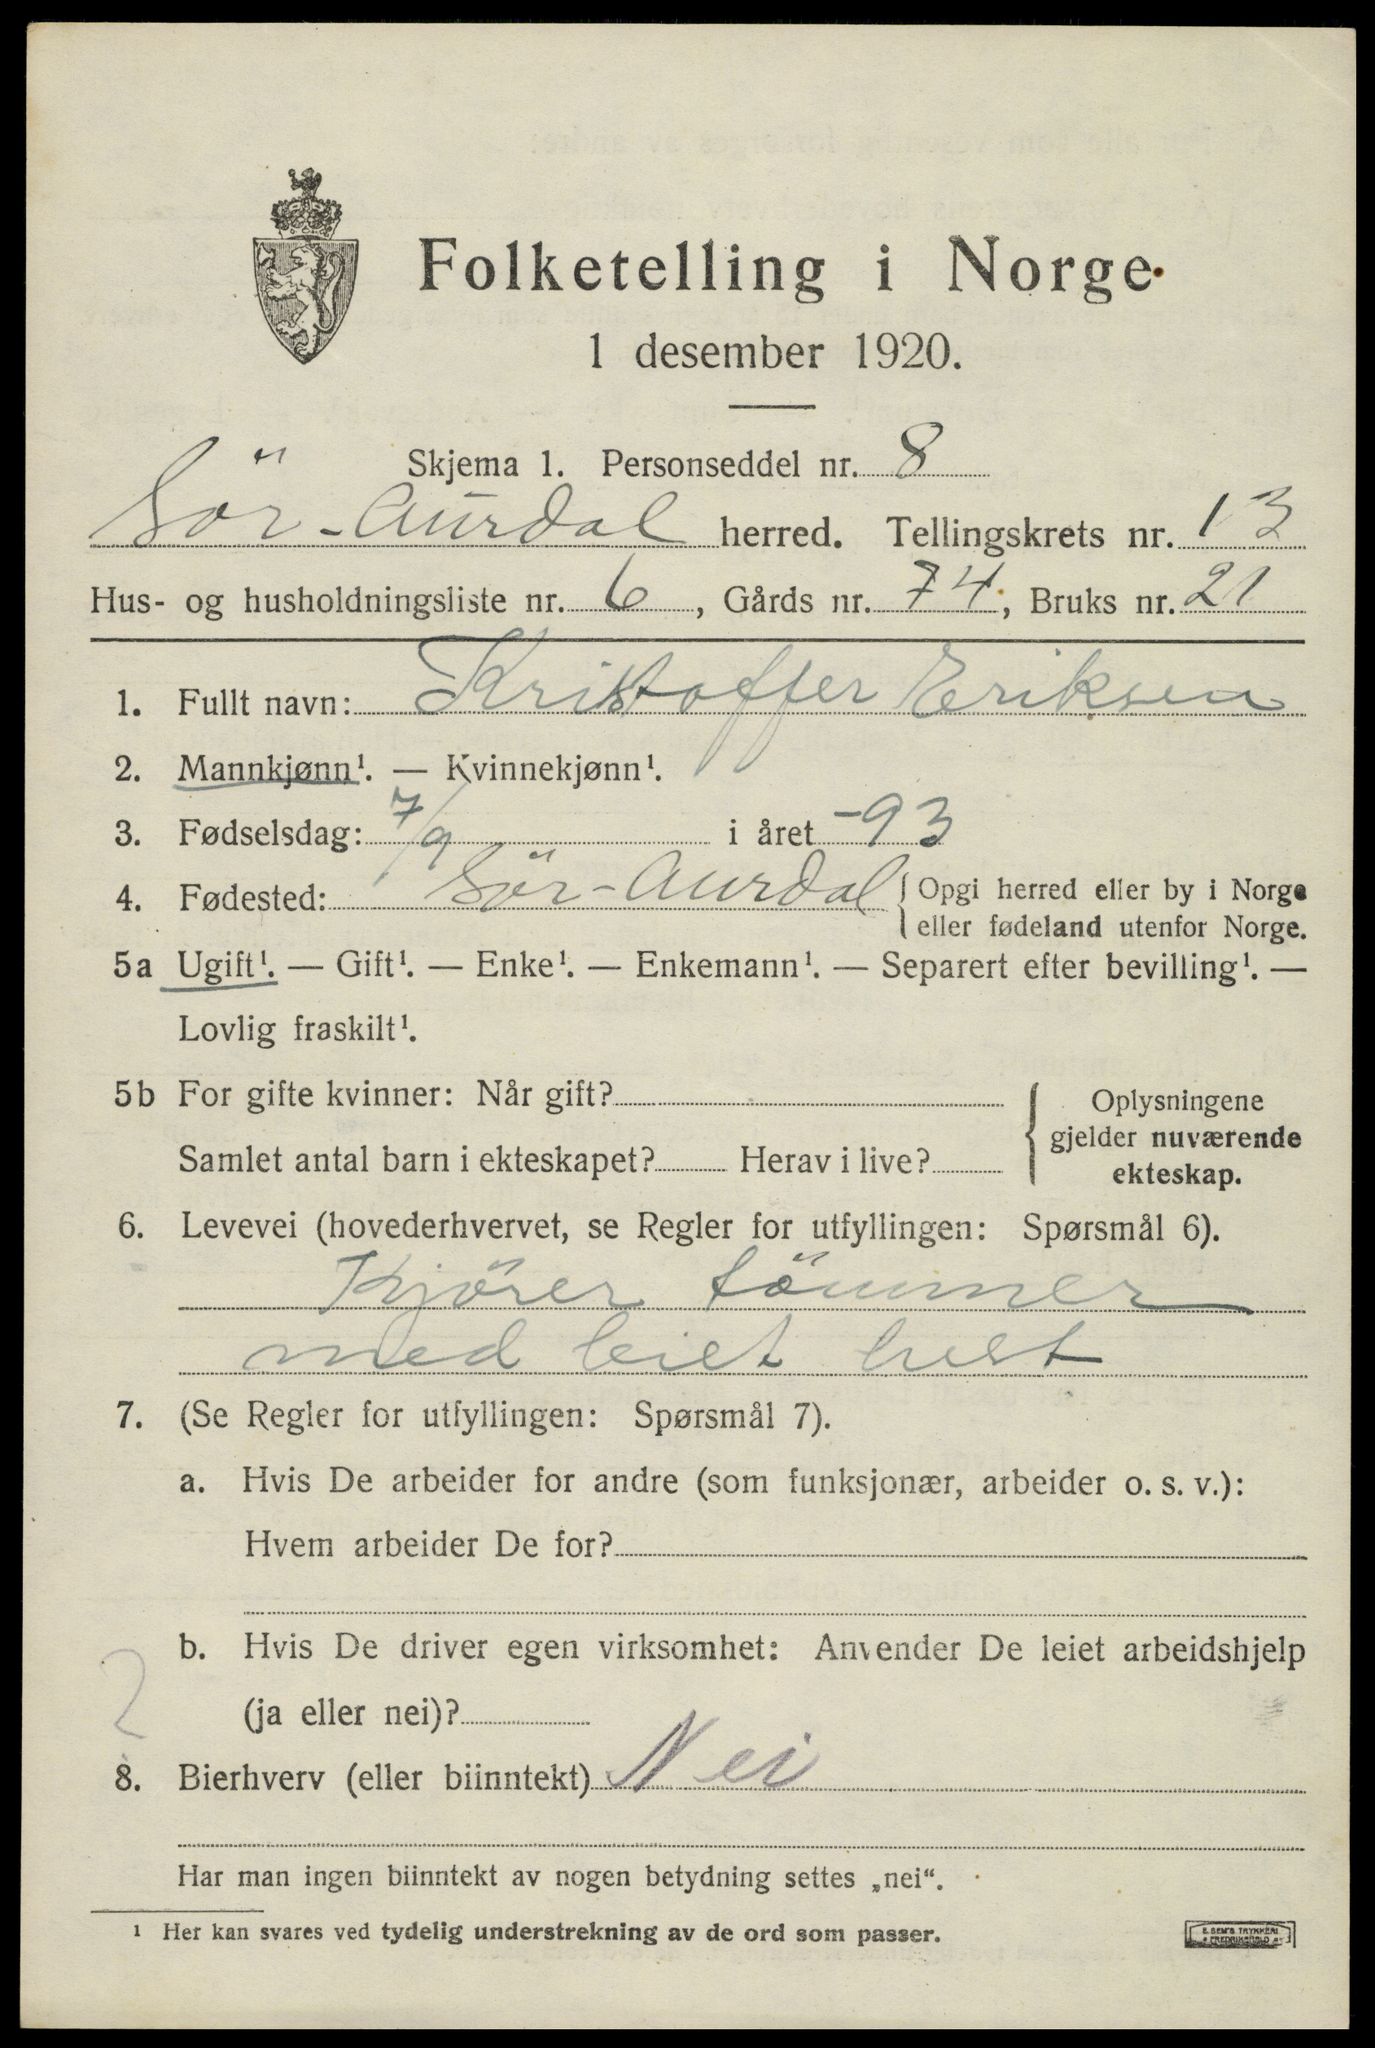 Folketelling i Norge.
1 desember 1920.
Skjema 1. Personseddel nr. 8
Sör-Aurdal herred. Tellingskrets nr. 13
Hus- og husholdningsliste nr. 6, Gårds nr. 74, Bruks nr. 21
1. Fullt navn: Kristoffer Eriksen
2. Mannkjønn¹. — Kvinnekjønn¹.
3. Fødselsdag: 7/9 i året -93
4. Fødested: Sör-Aurdal { Opgi herred eller by i Norge
eller fødeland utenfor Norge.
5a Ugift¹. — Gift¹. — Enke¹. — Enkemann¹. — Separert efter bevilling¹. —
Lovlig fraskilt¹.
5b For gifte kvinner: Når gift?
Samlet antal barn i ekteskapet? Herav i live?
Oplysningene
gjelder nuværende
ekteskap.
6. Levevei (hovederhvervet, se Regler for utfyllingen: Spørsmål 6).
Kjörer tömmer
med leiet hest
7. (Se Regler for utfyllingen: Spørsmål 7).
a. Hvis De arbeider for andre (som funksjonær, arbeider o. s. v.):
Hvem arbeider De for?
b. Hvis De driver egen virksomhet: Anvender De leiet arbeidshjelp
(ja eller nei)?
2
8. Bierhverv (eller biinntekt) Nei
Har man ingen biinntekt av nogen betydning settes „nei“.
¹ Her kan svares ved tydelig understrekning av de ord som passer.
E SEM'S TRYKKERI
FREDRIKSHALD